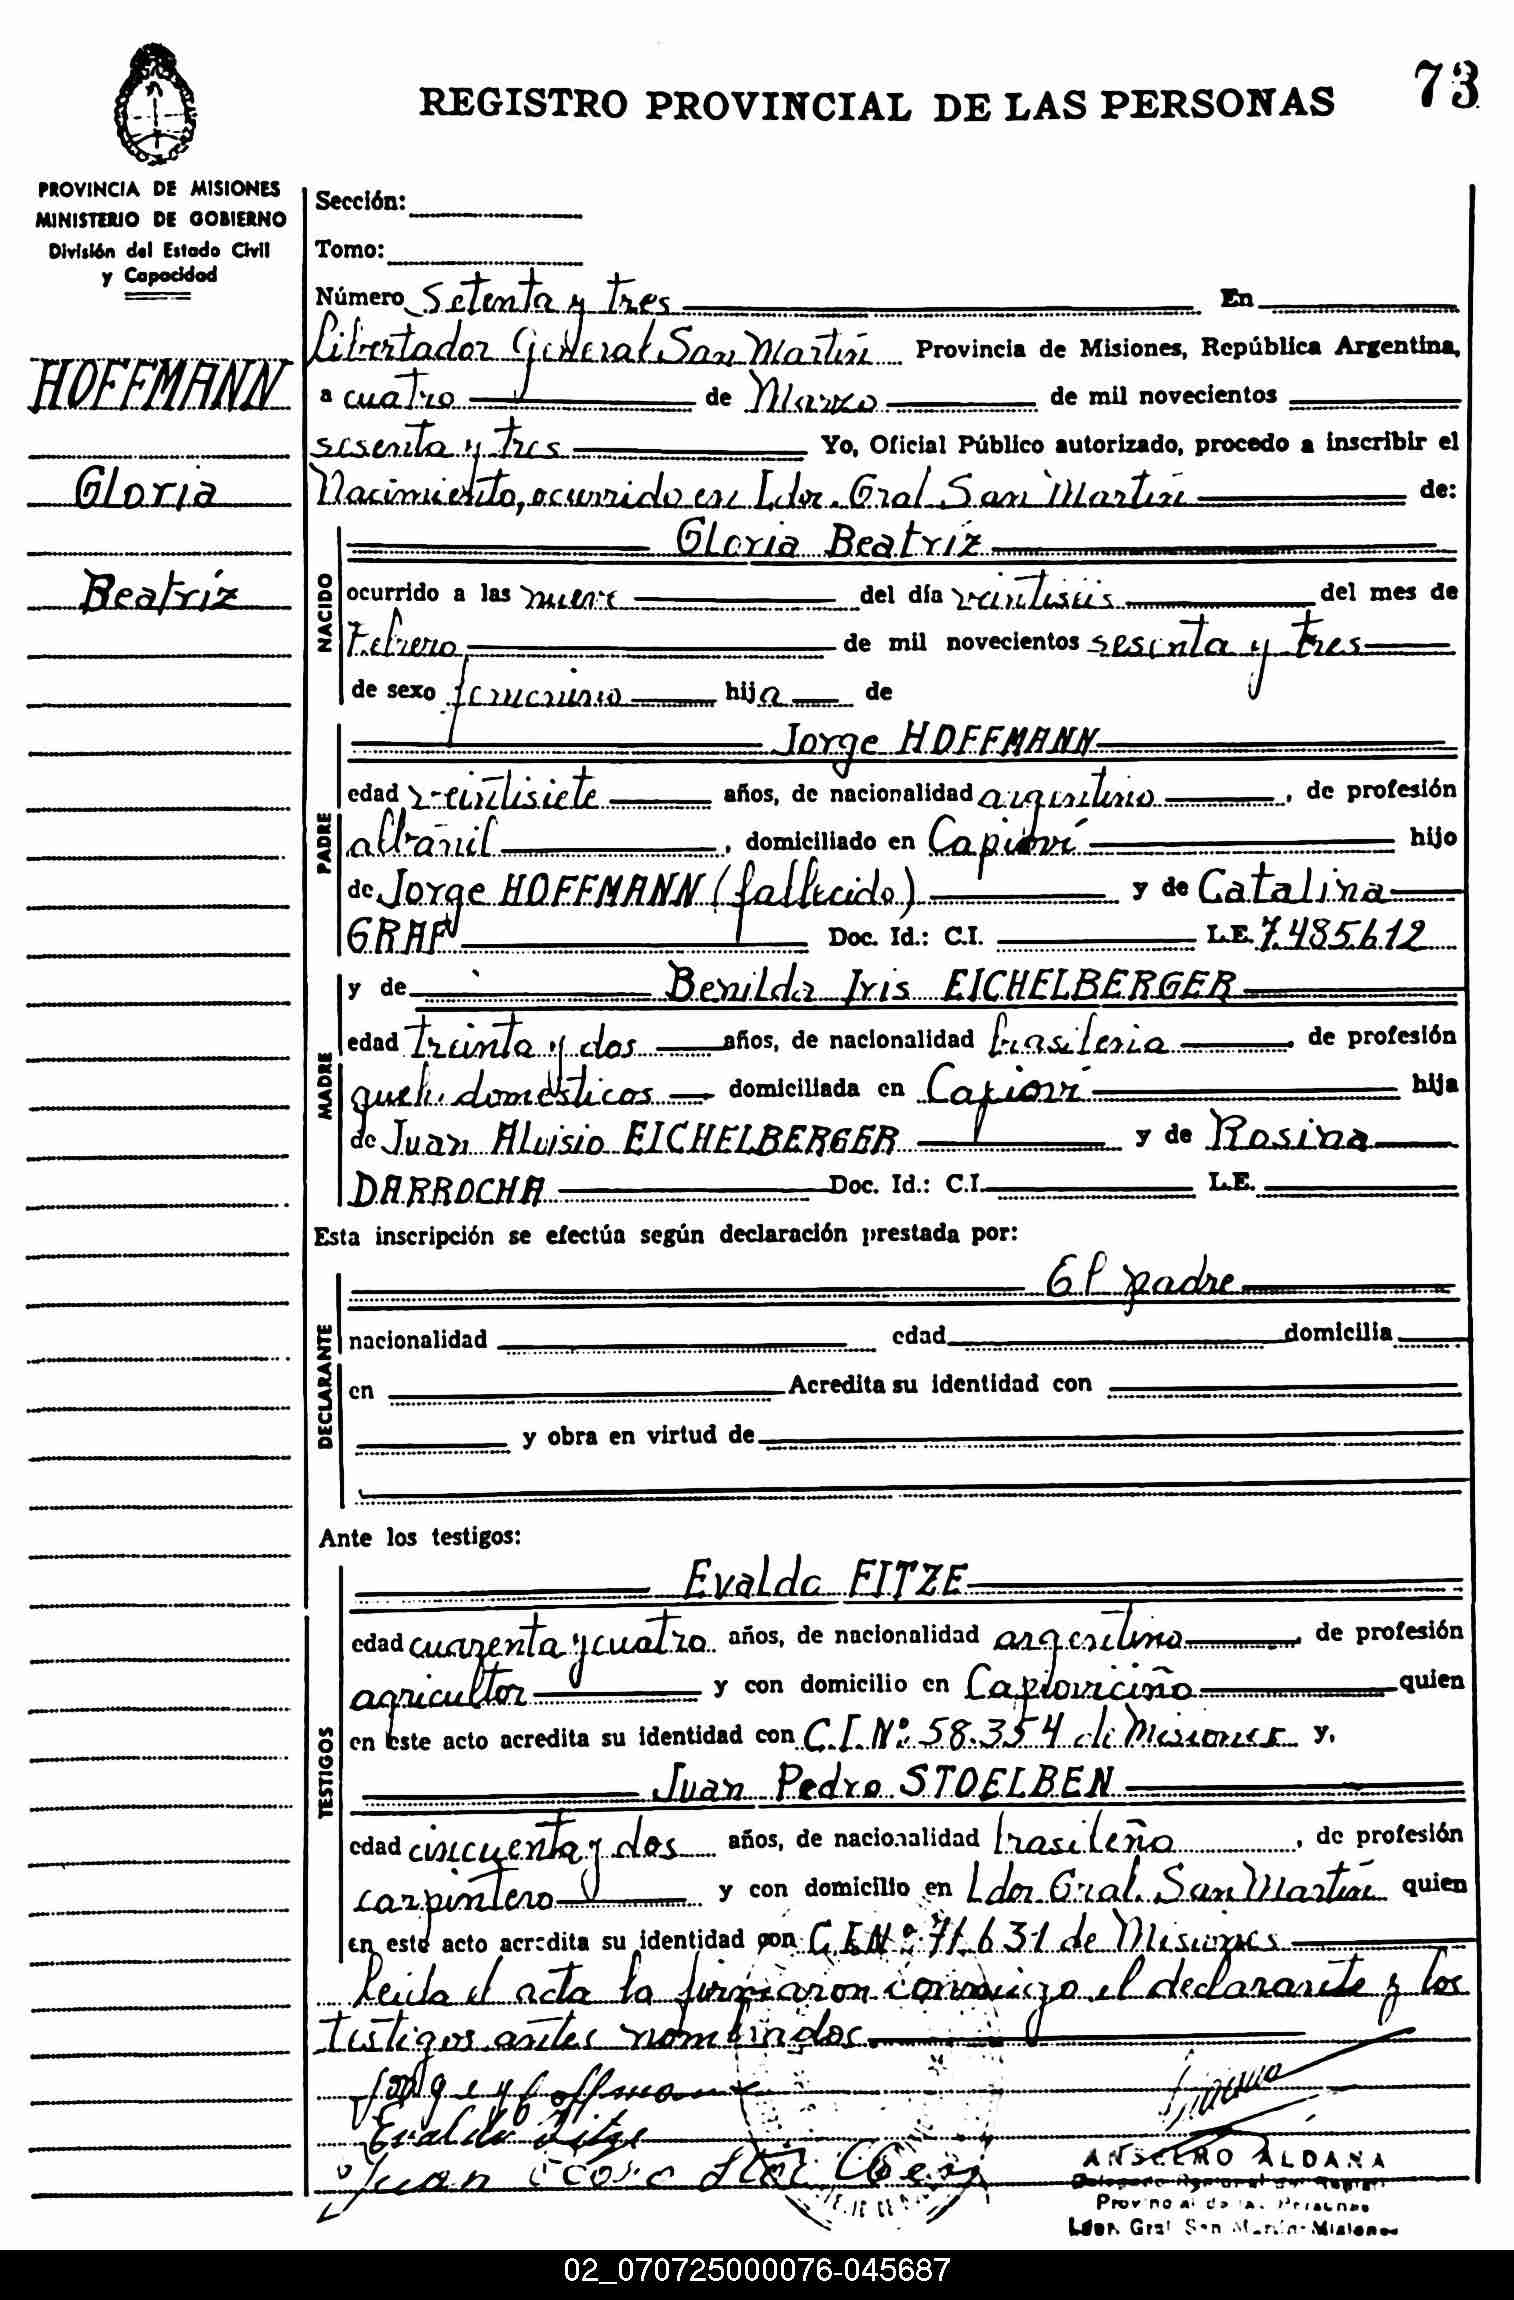 73
REGISTRO PROVINCIAL DE LAS PERSONAS
PROVINCIA DE MISIONES
MINISTERIO DE GOBIERNO
División del Estado Civil
y Capacidad
HOFFMANN
Gloria
Beatriz
Sección:
Tomo:
Número Setenta y tres En
Libertador General San Martín Provincia de Misiones, República Argentina,
a cuatro de Marzo de mil novecientos
sesenta y tres Yo, Oficial Público autorizado, procedo a inscribir el
Nacimiento, ocurrido en Ldor. Gral San Martín de:
NACIDO
Gloria Beatriz
ocurrido a las nueve del día veintiseis del mes de
Febrero de mil novecientos sesenta y tres
de sexo femenino hija de
PADRE
Jorge HOFFMANN
edad veintisiete años, de nacionalidad argentino, de profesión
albañil, domiciliado en Capioví hijo
de Jorge HOFFMANN (fallecido) y de Catalina
GRAF Doc. Id.: C.I. L.E. 7.485.612
MADRE
y de Benilda Iris EICHELBERGER
edad treinta y dos años, de nacionalidad brasileña de profesión
queh. domésticos domiciliada en Capioví hija
de Juan Aluisio EICHELBERGER y de Rosina
DARROCHA Doc. Id.: C.I. L.E.
Esta inscripción se efectúa según declaración prestada por:
DECLARANTE
El padre
nacionalidad edad domicilia
en Acredita su identidad con
y obra en virtud de
Ante los testigos:
TESTIGOS
Evaldo FITZE
edad cuarenta y cuatro años, de nacionalidad argentino de profesión
agricultor y con domicilio en Capioviciño quien
en este acto acredita su identidad con C.I.Nº: 58.354 de Misiones y,
Juan Pedro STOELBEN
edad cincuenta y dos años, de nacionalidad brasileño, de profesión
carpintero y con domicilio en Ldor. Gral. San Martín quien
en este acto acredita su identidad con C.I.Nº: 71.631 de Misiones
Leída el acta la firmaron conmigo el declarante y los
testigos antes nombrados.
Jorge Hoffmann
Evaldo Fitze
Juan
ANSELMO ALDANA
Delegado Regional del Registro
Provincial de las Personas
Ldor. Gral San Martín-Misiones
02_070725000076-045687